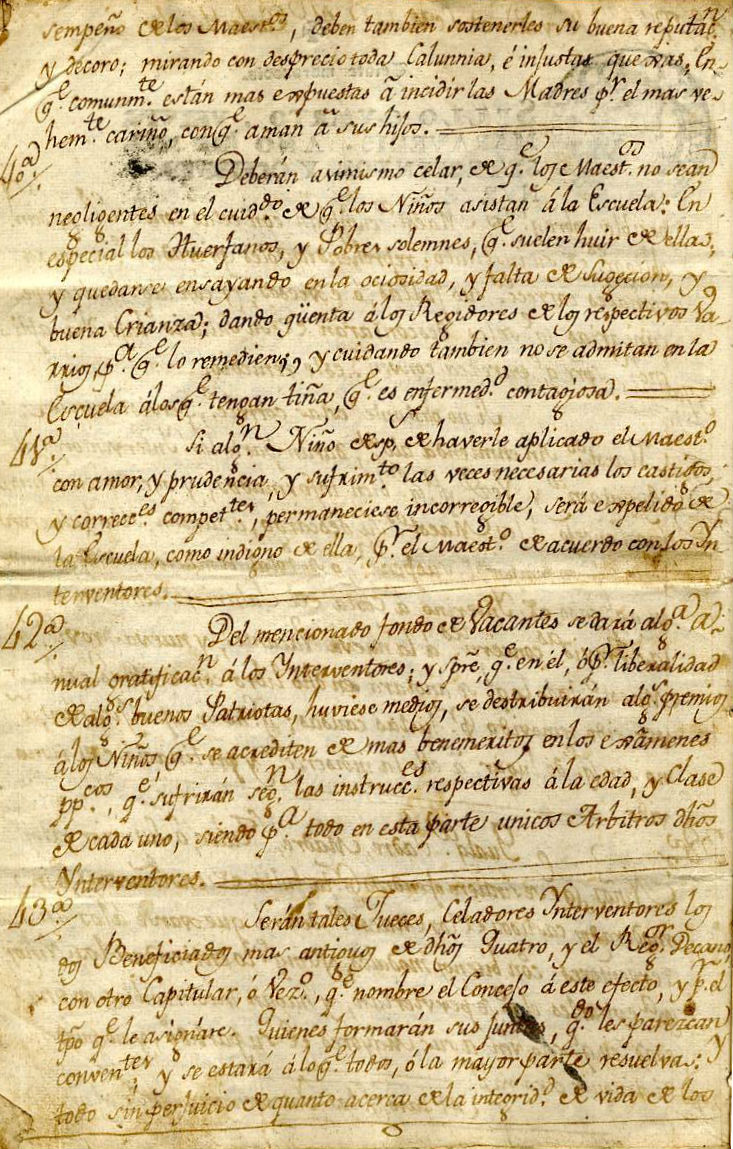 sempeño de los Maest.os, deben tambien sostenerles su buena reputac.n
y decoro; mirando con desprecio toda Calunnia, é injustas quexas, En
q.e comunm.te están mas expuestas á incidir las Madres p.r el mas ve-
hem.te cariño, con q.e aman á sus hijos.
40.a
Deberán asimismo celar, de q.e los Maest.os no sean
negligentes en el cuid.do de q.e los Niños asistan á la Escuela: En
especial los Huerfanos, y Pobres solemnes, q.e suelen huir de ellas,
y quedarse ensayando en la ociosidad, y falta de Sugecion, y
buena Crianza; dando qüenta á los Regidores de los respectivos Va-
rrios p.a q.e lo remedien; y cuidando tambien no se admitan en la
Escuela á los q.e tengan tiña, q.e es enfermed.d contagiosa.
41.a
Si alg.n Niño desp.s de haverle aplicado el Maest.o
con amor, y prudencia, y sufrim.to las veces necesarias los castigos,
y correcc.es compet.tes, permaneciese incorregible, será expelido de
la Escuela, como indigno de ella, p.r el Maest.o de acuerdo con los Yn-
terventores.
42.a
Del mencionado fondo de Vacantes se dará alg.a a-
nual gratificac.n á los Interventores; y spre, q.e en él, ó p.r liberalidad
de alg.s buenos Patriotas, huviese medios, se destribuirán alg.s premios
á los Niños q.e se acrediten de mas benemeritos en los exâmenes
pp.cos, q.e sufrirán seg.n las instrucc.es respectivas á la edad, y Clase
de cada uno, siendo p.a todo en esta parte unicos Arbitros dhos
Ynterventores.
43.a
Serán tales Jueces, Celadores Ynterventores los
dos Beneficiados mas antiguos de dhos Quatro, y el Reg.or Decano,
con otro Capitular, ó Vez.o, q.e nombre el Concejo á este efecto, y p.r el
tpo q.e le asignare. Quienes formarán sus juntas, q.do les parezcan
conven.tes, y se estará á lo q.e todos, ó la mayor parte resuelvas: Y
todo sin perjuicio de quanto acerca de la integrid.d de vida de los